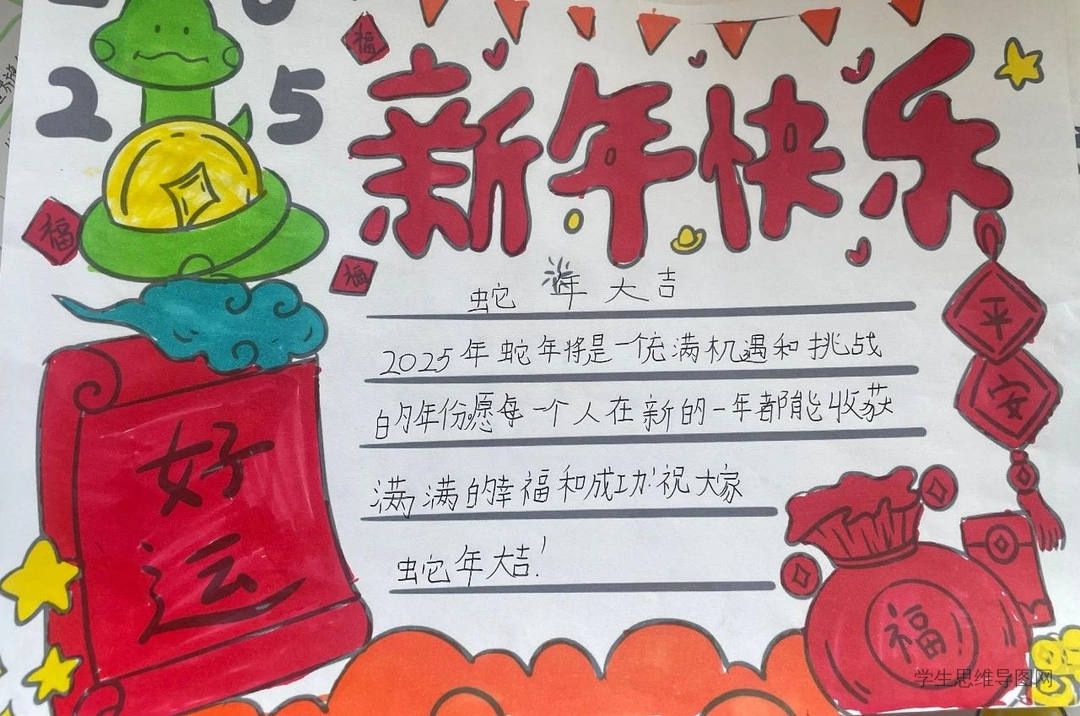 2025
新年快乐
福
福
福
蛇年大吉
2025年蛇年将是一个充满机遇和挑战
的年份愿每一个人在新的一年都能收获
满满的幸福和成功祝大家
蛇年大吉!
好运
平安
福
学生思维导图网